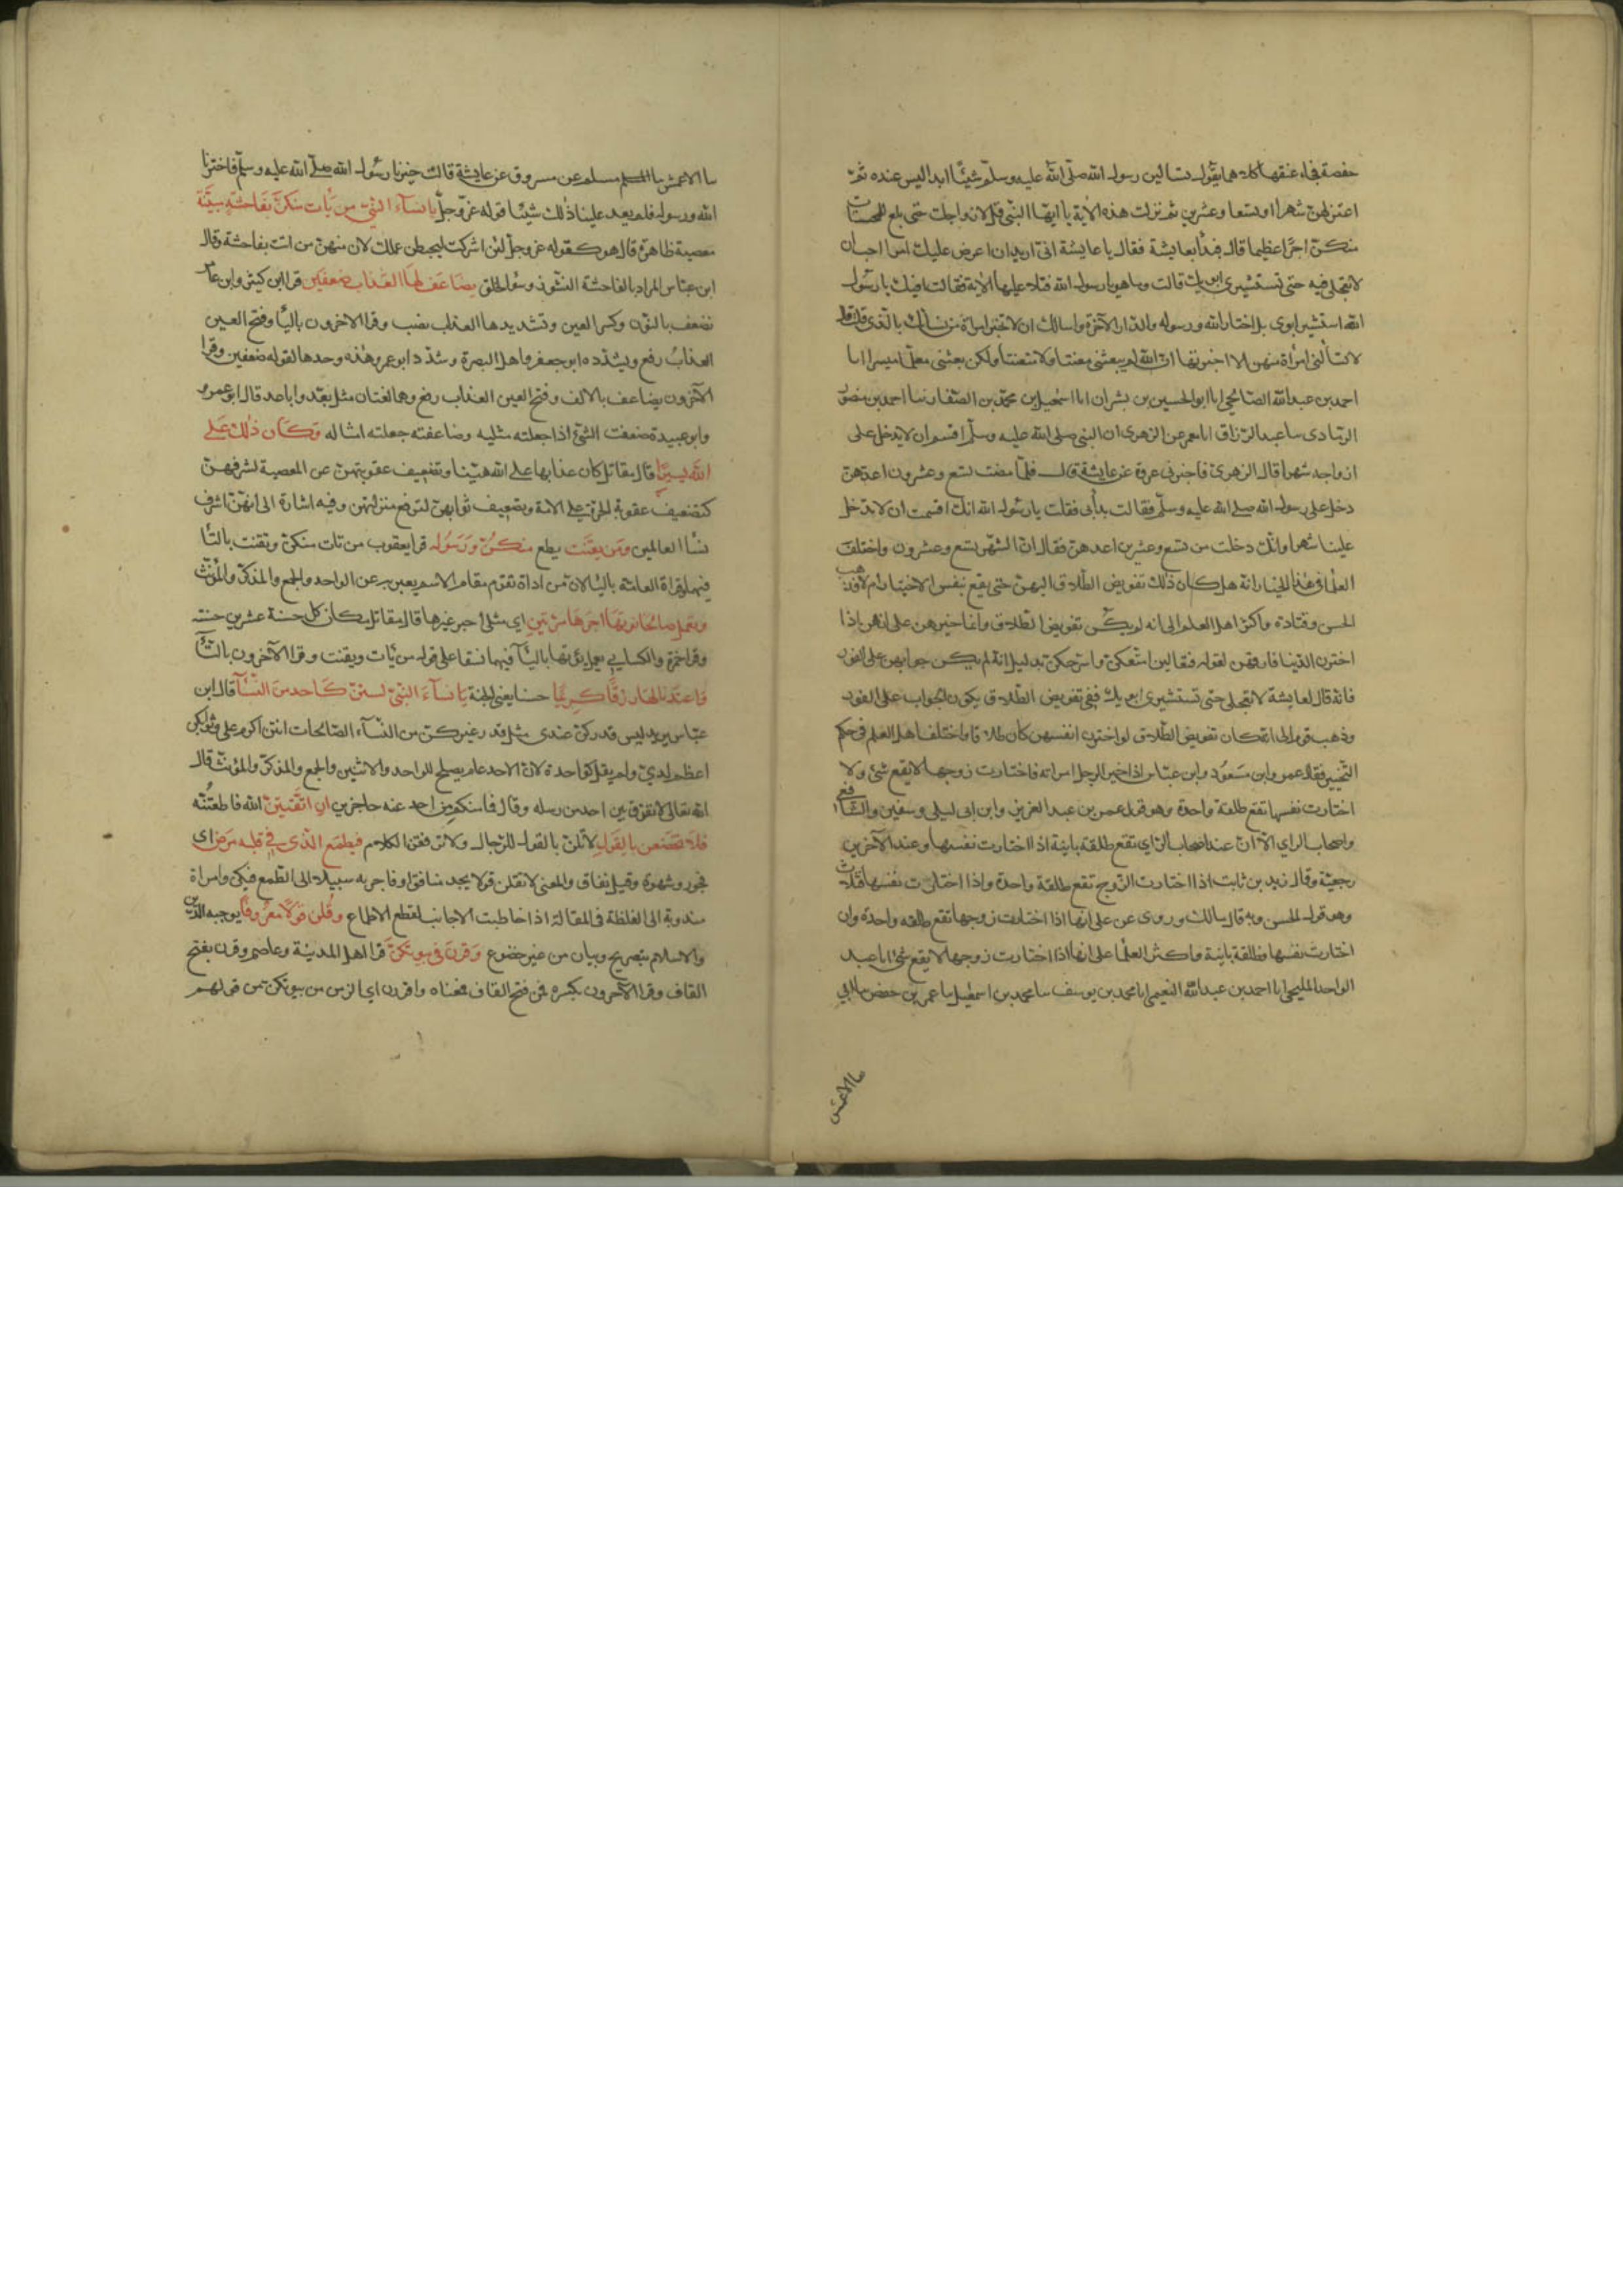 حفصة فجاء عنقها كلاهما يقول تسالين رسول الله صلى الله عليه وسلم شيئا ابدا ليس عنده ثم
اعتزلهن شهرا او تسعا وعشرين ثم نزلت هذه الاية يا ايها النبي قل لازواجك حتى بلغ للمحسنات
منكن اجرا عظيما قال فبدأ بعايشة فقال يا عايشة اني اريد ان اعرض عليك امرا احب ان
لا تعجلي فيه حتى تستشيري ابويك قالت وما هو يا رسول الله فتلا عليها الاية فقالت افيك يا رسول
الله استشير ابوي بل اختار الله ورسوله والدار الآخرة واسالك ان لا تخبر امراة من نسائك بالذي قلت قال
لا تسألني امرأة منهن الا اخبرتها ان الله لم يبعثني معنتا ولا متعنتا ولكن بعثني معلما ميسرا انا
احمد بن عبد الله الصالحي انا ابو الحسين بن بشران انا اسمعيل بن محمد بن الصفار نا احمد بن منصور
الرمادي نا عبد الرزاق انا معمر عن الزهري ان النبي صلى الله عليه وسلم اقسم ان لا يدخل على
ازواجه شهرا قال الزهري فاخبرني عروة عن عايشة قالت فلما مضت تسع وعشرون اعدهن
دخل على رسول الله صلى الله عليه وسلم فقالت بدأ بي فقلت يا رسول الله انك اقسمت ان لا تدخل
علينا شهرا وانك دخلت من تسع وعشرين اعدهن فقال ان الشهر تسع وعشرون واختلف
العلما في هذا الخيار انه هل كان ذلك تفويض الطلاق اليهن حتى يقع بنفس الاختيار ام لا فذهب
الحسن وقتادة واكثر اهل العلم الى انه لم يكن تفويض الطلاق وانما خيرهن على انهن اذا
اخترن الدنيا فارقهن لقوله فتعالين امتعكن واسرحكن بدليل انه لم يكن جوابهن على الفور
فانه قال لعايشة لا تعجلي حتى تستشيري ابويك ففي تفويض الطلاق يكون الجواب على الفور
وذهب قوم الى انه كان تفويض الطلاق لو اخترن انفسهن كان طلاقا واختلف اهل العلم في حكم
التخيير فقال عمر وابن مسعود وابن عباس اذا خير الرجل امراته فاختارت زوجها لا يقع شئ ولا
اختارت نفسها تقع طلقة واحدة وهو قول عمر بن عبد العزيز وابن ابي ليلى وسفين والشافعي
واصحاب الراي الا ان عند اصحاب الراي تقع طلقة باينة اذا اختارت نفسها وعند الآخرين
رجعية وقال زيد بن ثابت اذا اختارت الزوج تقع طلقة واحدة واذا اختارت نفسها فثلاث
وهو قول الحسن وبه قال مالك وروي عن علي انها اذا اختارت زوجها تقع طلقه واحدة وان
اختارت نفسها فطلقة باينة واكثر العلما على انها اذا اختارت زوجها لا يقع شئ انا عبد
الواحد المليحي انا احمد بن عبد الله النعيمي انا محمد بن يوسف نا محمد بن اسمعيل نا عمر بن حفص نا ابي
نا الاعمش
نا الاعمش نا مسلم عن مسروق عن عايشة قالت خيرنا رسول الله صلى الله عليه وسلم فاخترنا
الله ورسوله فلم يعد علينا ذلك شيئا قوله عز وجل يا نساء النبي من يأت منكن بفاحشة مبينة
معصية ظاهرة قال هو كقوله عز وجل لئن اشركت ليحبطن عملك لان منهن من اتت بفاحشة وقال
ابن عباس المراد بالفاحشة النشوز وسؤ الخلق يضاعف لها العذاب ضعفين قرا ابن كثير وابن عامر
نضعف بالنون وكسر العين وتشديدها العذاب نصب وقرا الاخرون باليأ وفتح العين
العذاب رفع ويشدده ابو جعفر واهل البصرة وشدد ابو عمرو هذه وحدها لقوله ضعفين وقرا
الآخرون يضاعف بالالف وفتح العين العذاب رفع وهما لغتان مثل بعد وباعد قال ابو عمرو
وابو عبيدة ضعفت الشئ اذا جعلته مثليه وضاعفته جعلته امثاله وكان ذلك على
الله يسيرا قال مقاتل كان عذابها على الله هينا وتضعيف عقوبتهن عن المعصية لشرفهن
كتضعيف عقوبة الحرة على الامة وتضعيف ثوابهن لترفع منزلتهن وفيه اشارة الى انهن اشرف
نسأ العالمين ومن يقنت يطع منكن ورسوله قرا يعقوب من تات منكن وتقنت بالتأ
فيهما وقراة العامة باليأ لان من اداة تقوم مقام الاسم يعبر به عن الواحد والجمع والمذكر والمؤنث
وتعمل صالحا نؤتها اجرها مرتين اي مثلي اجر غيرها قال مقاتل مكان كل حسنة عشرين حسنة
وقرا حمزة والكسايي يعمل يؤتها باليآ فيهما نسقا على قوله من يأت ويقنت وقرا الآخرون بالتآ
واعتدنا لها رزقا كريما حسنا يعني الجنة يا نسآء النبي لستن كاحد من النسآ قال ابن
عباس يريد ليس قدركن عندي مثل قدر غيركن من النسآء الصالحات انتن اكرم علي وثوابكن
اعظم لدي ولم يقل كواحدة لان الاحد عام يصلح للواحد والاثنين والجمع والمذكر والمؤنث قال
الله تعالى لا نفرق بين احد من رسله وقال فما منكم من احد عنه حاجزين ان اتقيتن الله فاطعتنه
فلا تخضعن بالقول لا تلن بالقول للرجال ولا ترققن الكلام فيطمع الذي في قلبه مرض اي
فجور وشهوة وقيل نفاق والمعنى لا تقلن قولا يجد منافق او فاجر به سبيلا الى الطمع فيكن والمراة
مندوبة الى الغلظة في المقالة اذا خاطبت الاجانب لقطع الاطماع وقلن قولا معروفا يوجبه الدين
والاسلام بتصريح وبيان من غير خضوع وقرن في بيوتكن قرا اهل المدينة وعاصم وقرن بفتح
القاف وقرا الآخرون بكسره فمن فتح القاف فمعناه واقررن اي الزمن من بيوتكن من قولهم